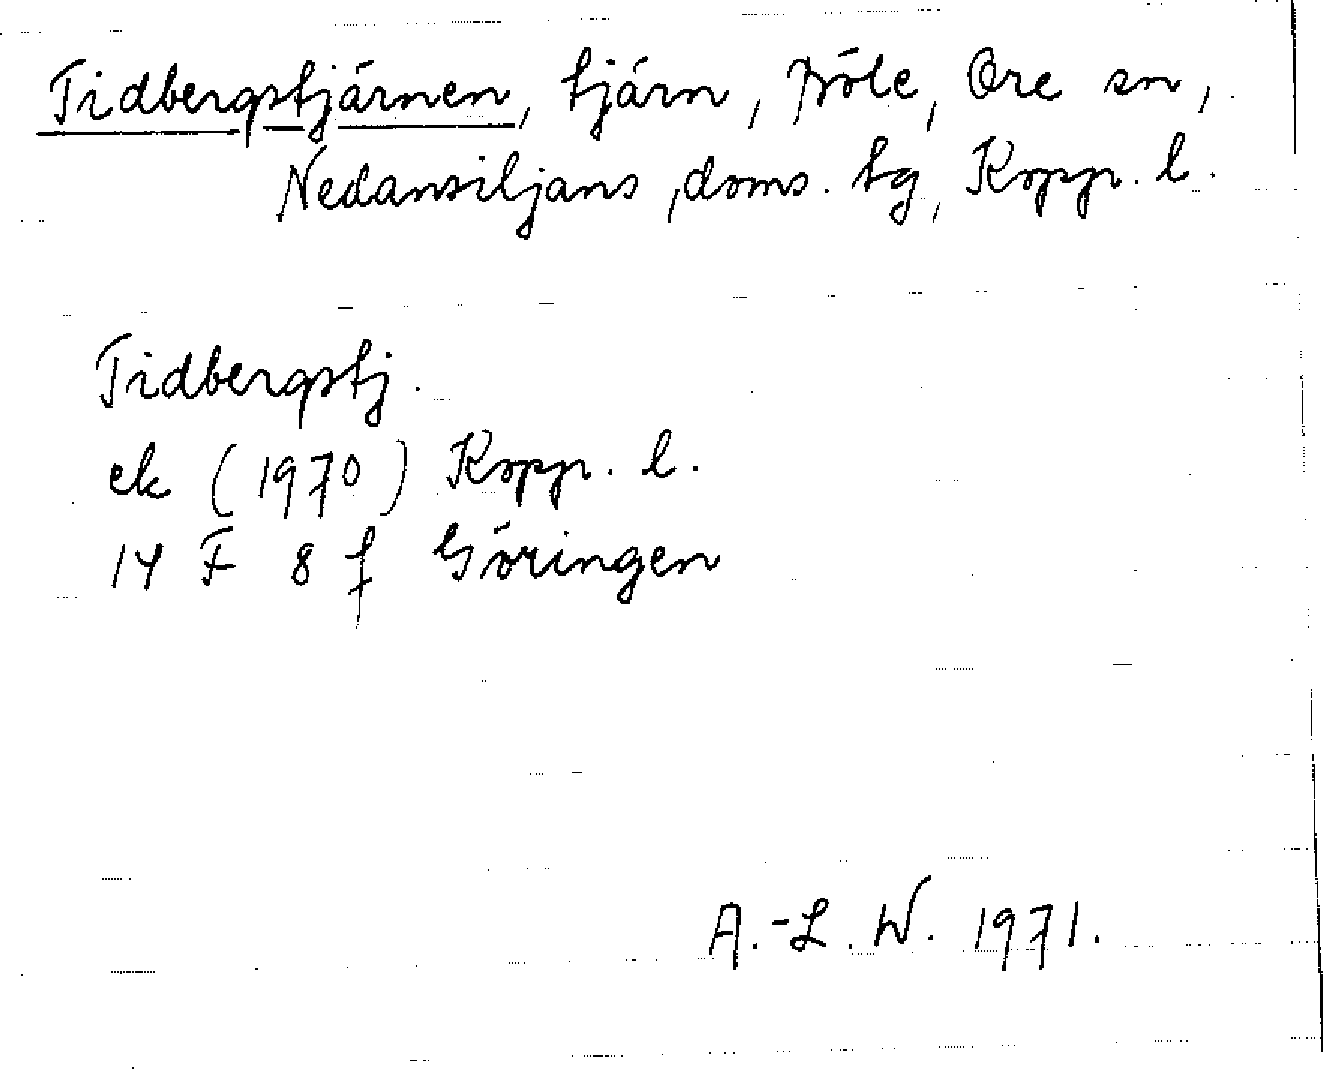 Tidbergstjärnen, tjärn, Döle, Ore sn,
Nedansiljans doms. tg, Kopp. l.
Tidbergstj.
ek (1970) Kopp. l.
14 F 8 f Göringen
A.-L. W. 1971.